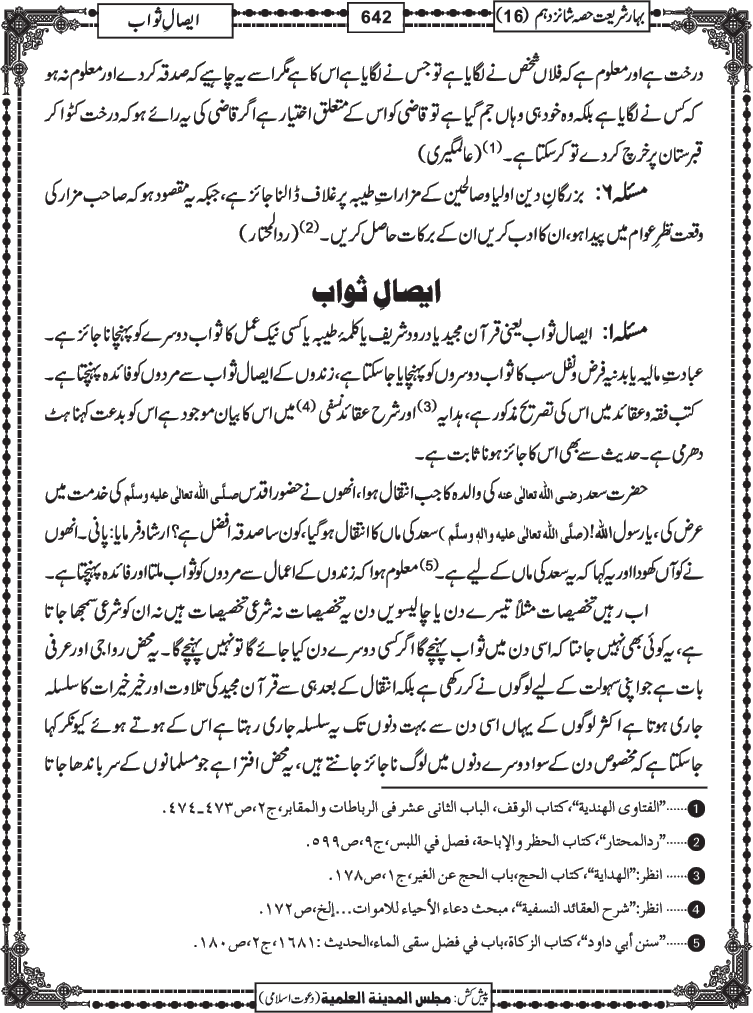 بہارِ شریعت حصہ شانزدہم (16)
642
ایصالِ ثواب
درخت ہے اور معلوم ہے کہ فلاں شخص نے لگایا ہے تو جس نے لگایا ہے اس کا ہے مگر اسے یہ چاہیے کہ صدقہ کر دے اور معلوم نہ ہو
کہ کس نے لگایا ہے بلکہ وہ خود ہی وہاں جم گیا ہے تو قاضی کو اس کے متعلق اختیار ہے اگر قاضی کی یہ رائے ہو کہ درخت کٹوا کر
قبرستان پر خرچ کر دے تو کر سکتا ہے۔(1) (عالمگیری)
مسئلہ ۶: بزرگانِ دین اولیا و صالحین کے مزاراتِ طیبہ پر غلاف ڈالنا جائز ہے، جبکہ یہ مقصود ہو کہ صاحبِ مزار کی
وقعت نظرِ عوام میں پیدا ہو، ان کا ادب کریں ان کے برکات حاصل کریں۔(2) (ردالمحتار)
ایصالِ ثواب
مسئلہ ۱: ایصال ثواب یعنی قرآن مجید یا درود شریف یا کلمۂ طیبہ یا کسی نیک عمل کا ثواب دوسرے کو پہنچانا جائز ہے۔
عبادتِ مالیہ یا بدنیہ فرض و نفل سب کا ثواب دوسروں کو پہنچایا جا سکتا ہے، زندوں کے ایصال ثواب سے مردوں کو فائدہ پہنچتا ہے۔
کتب فقہ و عقائد میں اس کی تصریح مذکور ہے، ہدایہ (3) اور شرح عقائد نسفی (4) میں اس کا بیان موجود ہے اس کو بدعت کہنا ہٹ
دھرمی ہے۔ حدیث سے بھی اس کا جائز ہونا ثابت ہے۔
حضرت سعد رضی اللہ تعالیٰ عنہ کی والدہ کا جب انتقال ہوا، انھوں نے حضور اقدس صلَّی اللہ تعالیٰ علیہ وسلَّم کی خدمت میں
عرض کی، یارسول اللہ! (صلَّی اللہ تعالیٰ علیہ واٰلہٖ وسلَّم) سعد کی ماں کا انتقال ہوگیا، کون سا صدقہ افضل ہے؟ ارشاد فرمایا: پانی۔ انھوں
نے کوآں کھودا اور یہ کہا کہ یہ سعد کی ماں کے لیے ہے۔(5) معلوم ہوا کہ زندوں کے اعمال سے مردوں کو ثواب ملتا اور فائدہ پہنچتا ہے۔
اب رہیں تخصیصات مثلاً تیسرے دن یا چالیسویں دن یہ تخصیصات نہ شرعی تخصیصات ہیں نہ ان کو شرعی سمجھا جاتا
ہے، یہ کوئی بھی نہیں جانتا کہ اسی دن میں ثواب پہنچے گا اگر کسی دوسرے دن کیا جائے گا تو نہیں پہنچے گا۔ یہ محض رواجی اور عرفی
بات ہے جو اپنی سہولت کے لیے لوگوں نے کر رکھی ہے بلکہ انتقال کے بعد ہی سے قرآن مجید کی تلاوت اور خیر خیرات کا سلسلہ
جاری ہوتا ہے اکثر لوگوں کے یہاں اسی دن سے بہت دنوں تک یہ سلسلہ جاری رہتا ہے اس کے ہوتے ہوئے کیونکر کہا
جا سکتا ہے کہ مخصوص دن کے سوا دوسرے دنوں میں لوگ ناجائز جانتے ہیں، یہ محض افترا ہے جو مسلمانوں کے سر باندھا جاتا
1......"الفتاوی الھندیۃ"، کتاب الوقف، الباب الثانی عشر فی الرباطات والمقابر، ج٢، ص٤٧٣-٤٧٤.
2......"ردالمحتار"، کتاب الحظر والإباحۃ، فصل في اللبس، ج٩، ص٥٩٩.
3...... انظر: "الھدایۃ"، کتاب الحج، باب الحج عن الغیر، ج١، ص١٧٨.
4...... انظر: "شرح العقائد النسفیۃ"، مبحث دعاء الأحیاء للاموات...إلخ، ص١٧٢.
5......"سنن أبي داود"، کتاب الزکاۃ، باب في فضل سقی الماء، الحدیث: ١٦٨١، ج٢، ص١٨٠.
پیش کش: مجلس المدینۃ العلمیۃ (دعوت اسلامی)